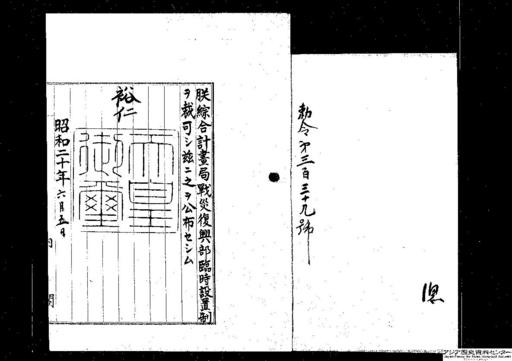 勅令第三百三十九號
朕綜合計畫局戰災復興部臨時設置制
ヲ裁可シ茲ニ之ヲ公布セシム
裕仁
天皇御璽
昭和二十年六月五日
内閣
アジア歴史資料センター